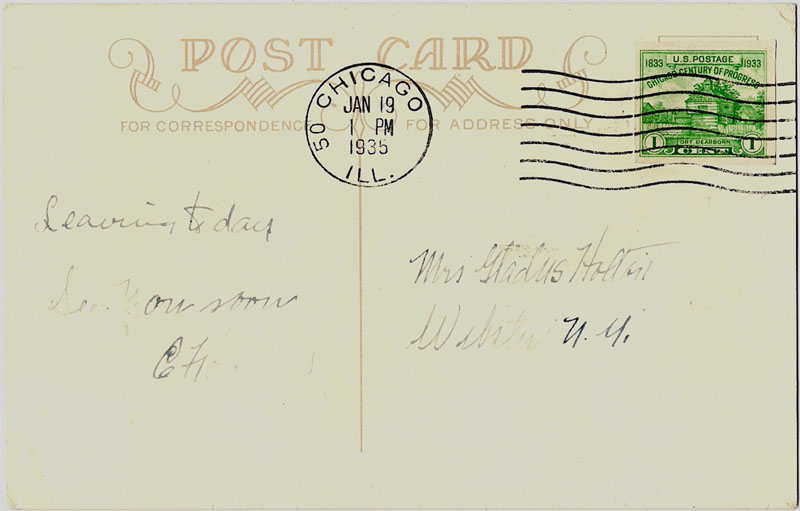 POST CARD
FOR CORRESPONDENCE
FOR ADDRESS ONLY
50 CHICAGO
JAN 19
1 PM
1935
ILL.
U.S. POSTAGE
1833 1933
CHICAGO CENTURY OF PROGRESS
FORT DEARBORN
1 CENT 1
Leaving to day
See You soon
Mrs Gladys Holton
Webster N.Y.